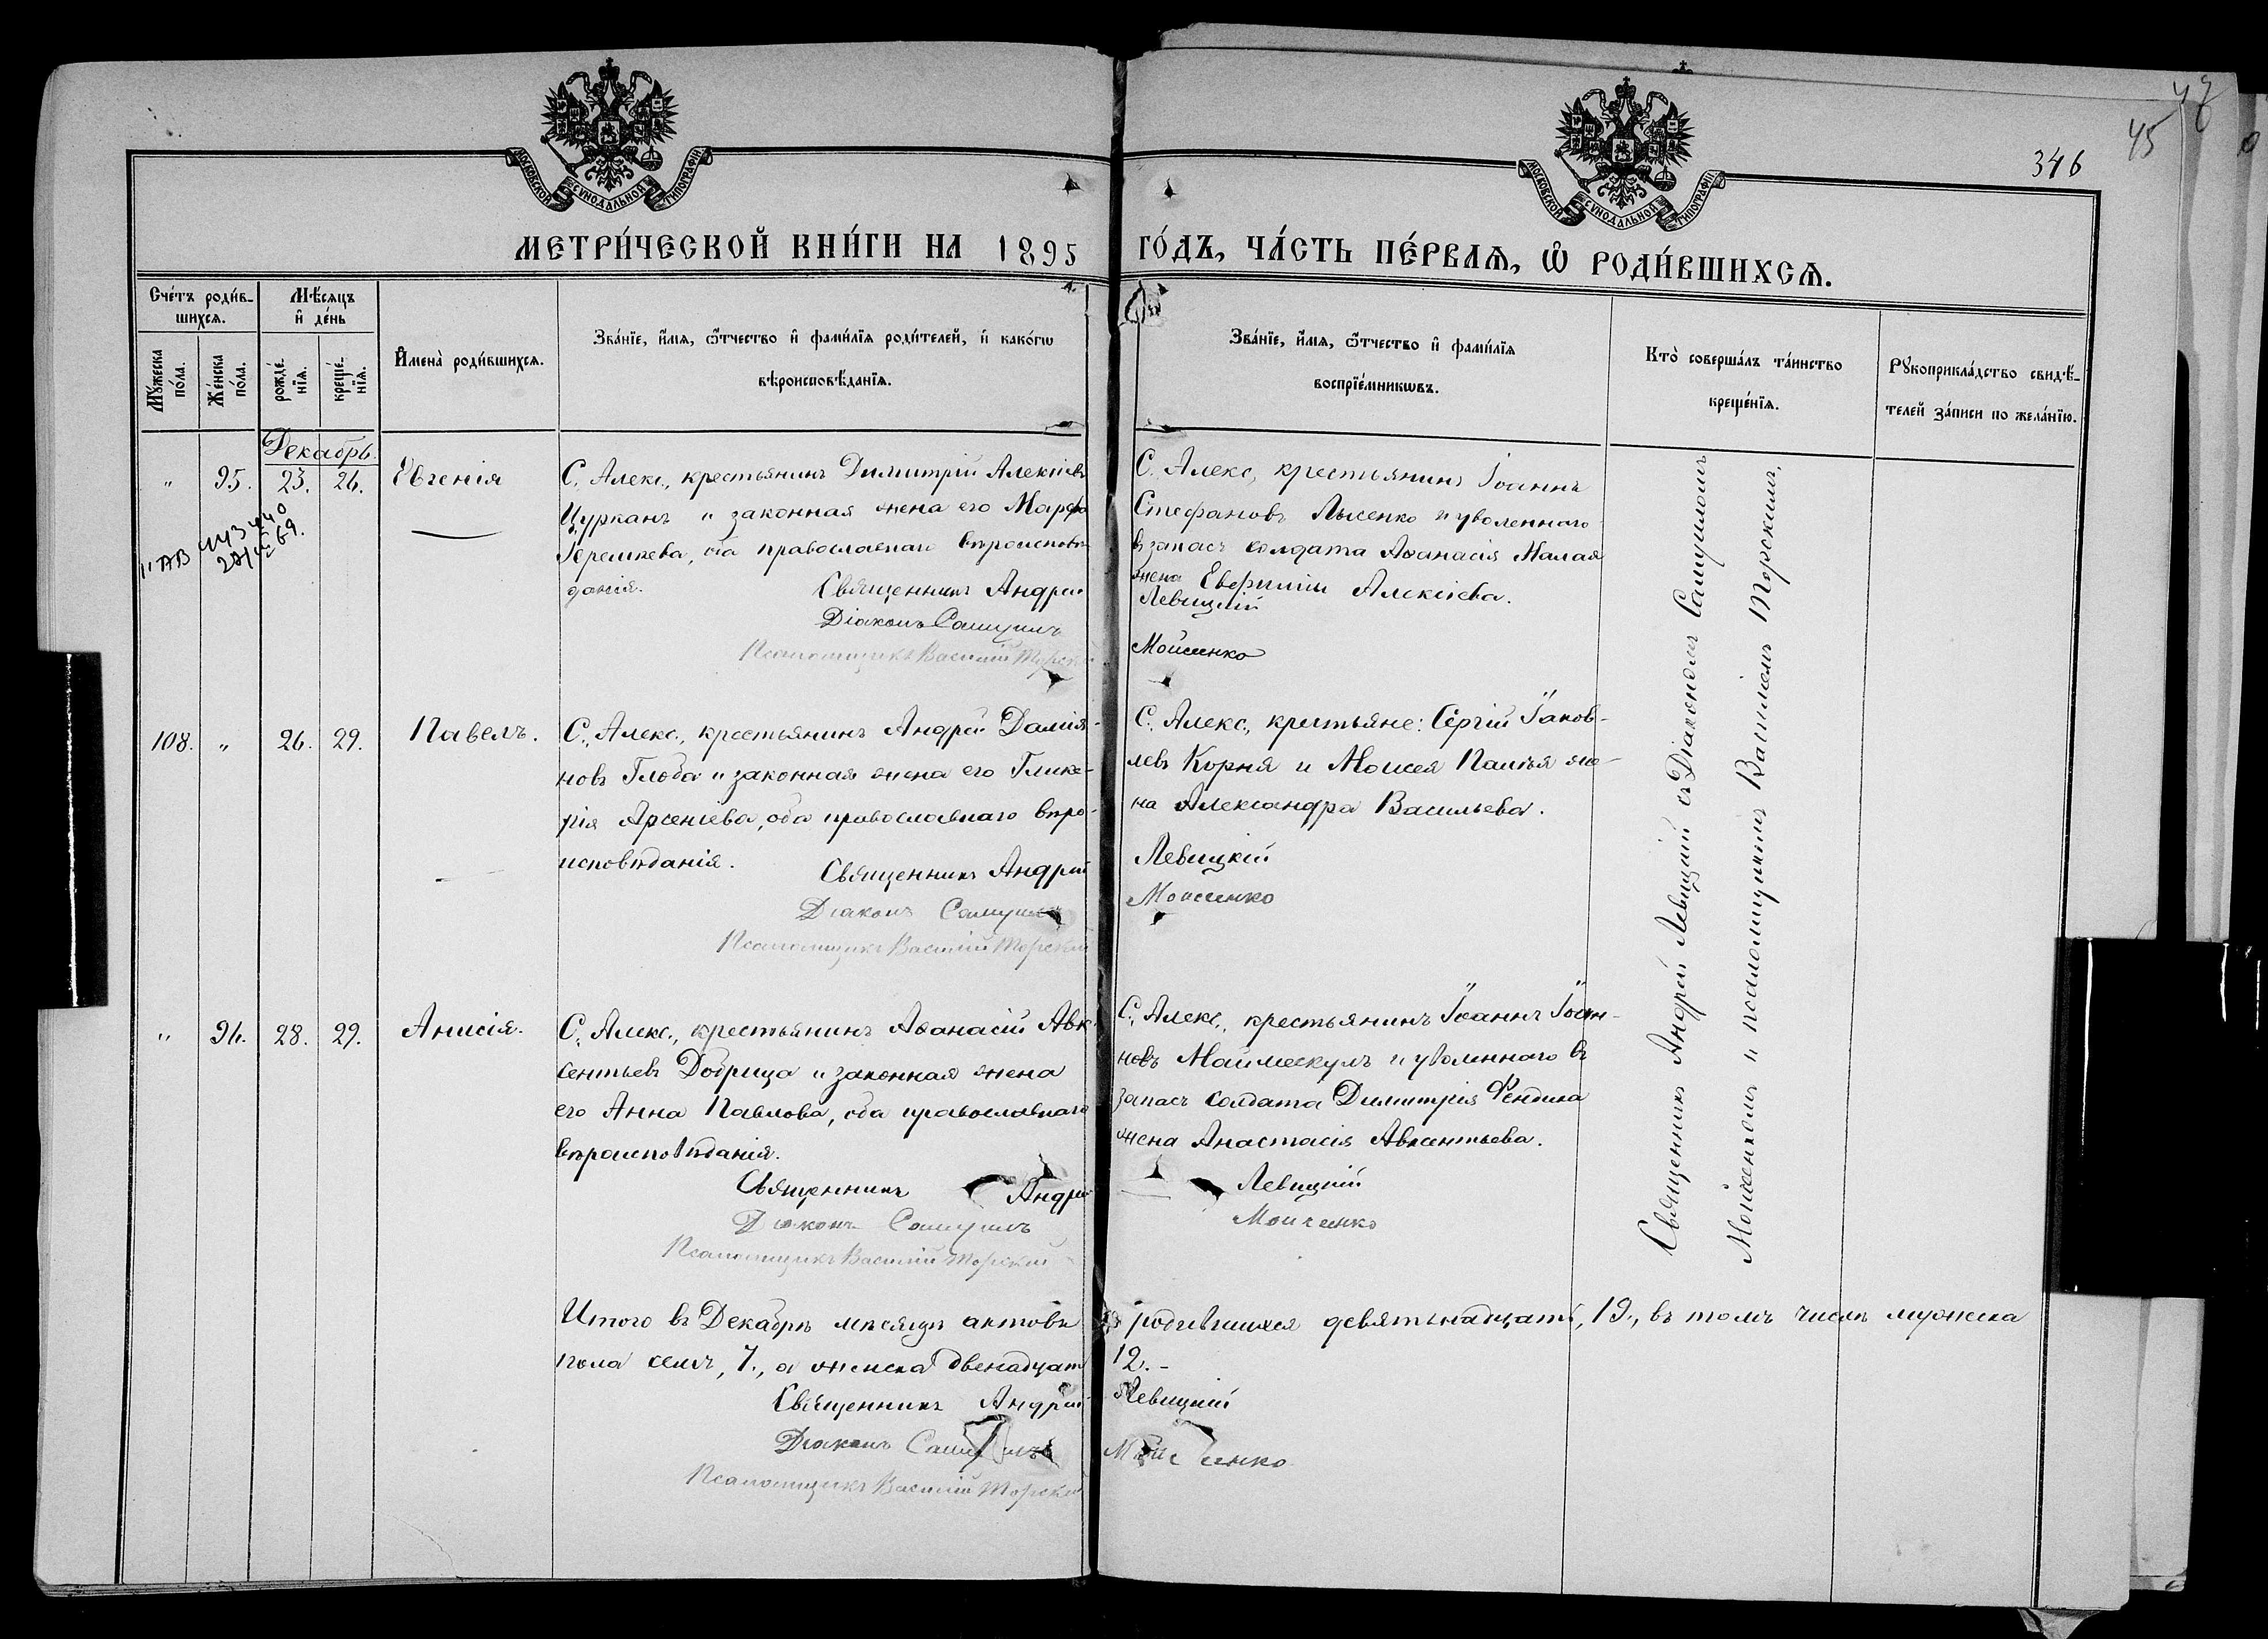 47
45
346
МОСКОВСКОЙ СѴНОДАЛЬНОЙ ТИПОГРАФІИ
МОСКОВСКОЙ СѴНОДАЛЬНОЙ ТИПОГРАФІИ
МЕТРИ́ЧЕСКОЙ КНИ́ГИ НА 1895 ГО́ДЪ, ЧА́СТЬ ПЕ́РВАѦ, Ѡ РОДИ́ВШИХСѦ.
Сче́тъ роди́в-
шихсѧ.
Мѣ́сѧцъ
и҆ де́нь
Мꙋ́жеска
по́ла.
Же́нска
по́ла.
рожде́-
нїѧ.
креще́-
нїѧ.
И҆мена̀ роди́вшихсѧ.
Зва́нїе, и҆́мѧ, ѻ҆́тчество и҆ фами́лїѧ роди́телей, и҆ како́гѡ
вѣроисповѣ́данїѧ.
Зва́нїе, и҆́мѧ, ѻ҆́тчество и҆ фами́лїѧ
воспрїе́мникѡвъ.
Кто̀ соверша́лъ та́инство
креще́нїѧ.
Рꙋкоприкла́дство свидѣ́-
телей за́писи по жела́нїю.
Декабрь.
" 95. 23. 26. Евгенія
С. Алекс., крестьянинъ Димитрій Алексіевъ
Цурканъ и законная жена его Марфа
оба православнаго вѣроисповѣ-
данія.
Священникъ Андрей
Діаконъ Самуилъ
Псаломщикъ Василій Торскій
С. Алекс., крестьянинъ Іоаннъ
Стефановъ Лысенко и уволеннаго
въ запасъ солдата Аѳанасія Малая
жена Евфимія Алексіева.
Левицкій
Моисеенко
108. " 26. 29. Павелъ.
С. Алекс., крестьянинъ Андрей Даміа-
новъ Глоба и законная жена его Глике-
рія Арсеніева, оба православнаго вѣро-
исповѣданія.
Священникъ Андрей
Діаконъ Самуилъ
Псаломщикъ Василій Торскій
С. Алекс., крестьяне: Сергій Іаков-
левъ Корня и Моисея Палія же-
на Александра Васильева.
Левицкій
Моисеенко
" 96. 28. 29. Анисія.
С. Алекс., крестьянинъ Аѳанасій Авк-
сентьевъ Добрица и законная жена
его Анна Павлова, оба православнаго
вѣроисповѣданія.
Священникъ Андрей
Діаконъ Самуилъ
Псаломщикъ Василій Торскій
С. Алекс., крестьянинъ Іоаннъ Іоан-
новъ Маймескулъ и уволеннаго въ
запасъ солдата Димитрія Фендика
жена Анастасія Авксентьева.
Левицкій
Моисеенко
Священникъ Андрей Левицкій съ Діакономъ Самуиломъ
Моисеенкомъ и псаломщикомъ Василіемъ Торскимъ.
Итого въ Декабрѣ мѣсяцѣ актовъ о родившихся девятнадцать, 19., въ томъ числѣ мужеска
пола семь, 7., а женска двенадцать 12.-
Священникъ Андрей Левицкій
Діаконъ Самуилъ Моисеенко
Псаломщикъ Василій Торскій